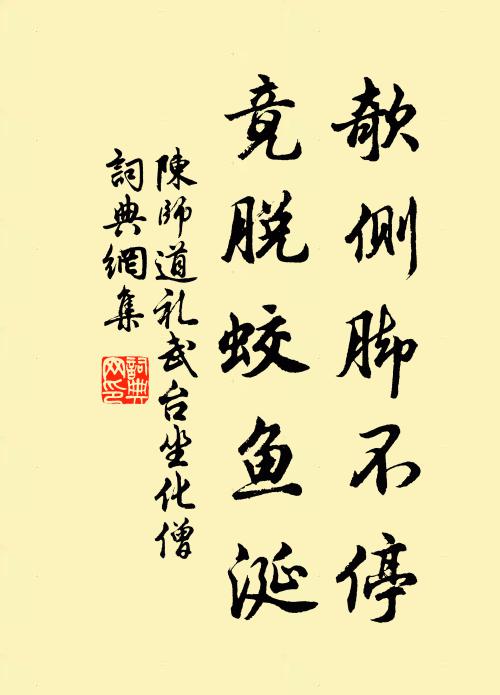 欹側脚不停
竟脱蛟鱼涎
陳師道礼武台坐化僧
詞典網集
詞典
网印